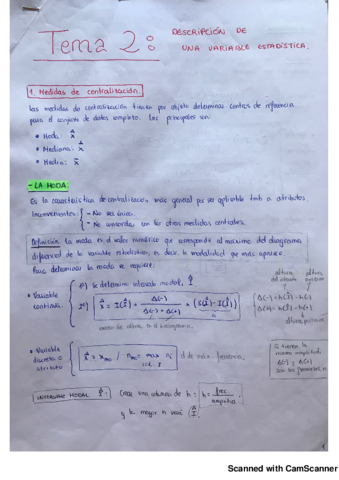 Tema 2:
DESCRIPCIÓN DE
UNA VARIABLE ESTADÍSTICA.
1. Medidas de centralización.
Las medidas de centralización tienen por objeto determinar centros de referencia
para el conjunto de datos completo. Las principales son:
• Moda:
• Mediana:
• Media: x̄
- LA MODA:
Es la característica de centralización más general por ser aplicable tmb a atributos
Inconvenientes: - No ser único.
- No concuerda con las otras medidas centrales.
Definición: La moda es el valor numérico que corresponde al máximo del diagrama
diferencial de la variable estadística, es decir, la modalidad que más aparece.
Para determinar la moda se requiere:
• Variable
continua.
1º) Se determina intervalo modal, Î
2º)
altura
altura
Δ(-) = h(Î) - h(-)
Δ(+) = h(Î) - h(+)
• Variable
discreta o
atributo
d de máx frecuencia.
Si tienen la
misma amplitud,
Δ(-) y Δ(+)
INTERVALO MODAL Î:
Crear una columna de h = frec. / amplitud
y la mayor h será
Scanned with CamScanner